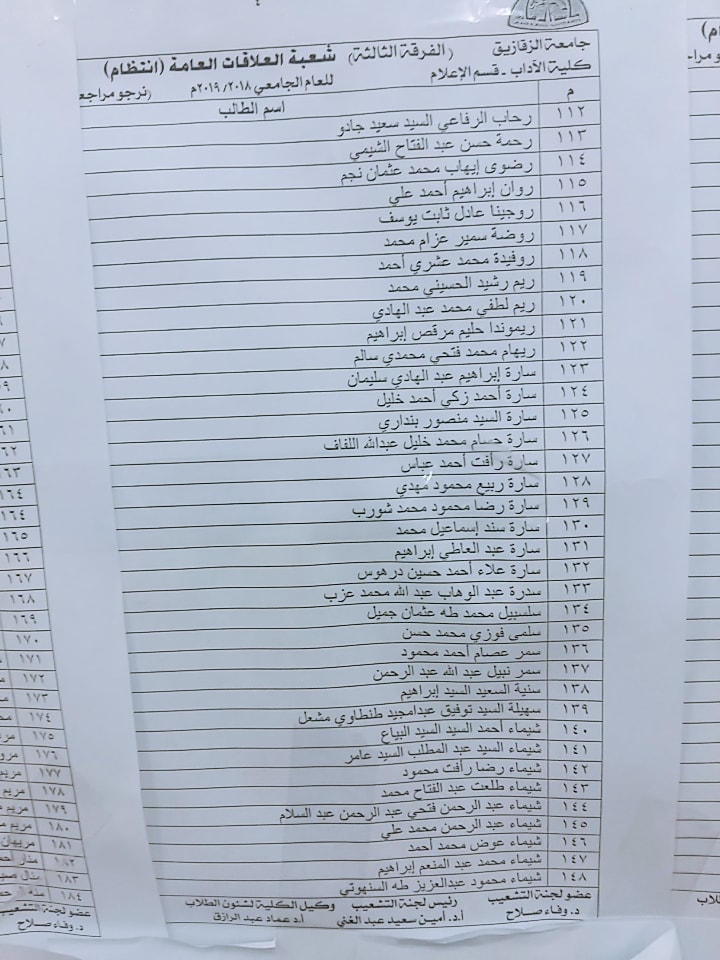 جامعة الزقازيق (الفرقة الثالثة) شعبة العلاقات العامة (انتظام)
كلية الآداب - قسم الإعلام للعام الجامعي ٢٠١٨/ ٢٠١٩م (نرجو مراجع
م اسم الطالب
١١٢ رحاب الرفاعي السيد سعيد جادو
١١٣ رحمة حسن عبد الفتاح الشيمي
١١٤ رضوى إيهاب محمد عثمان نجم
١١٥ روان إبراهيم أحمد علي
١١٦ روجينا عادل ثابت يوسف
١١٧ روضة سمير عزام محمد
١١٨ روفيدة محمد عشري أحمد
١١٩ ريم رشيد الحسيني محمد
١٢٠ ريم لطفي محمد عبد الهادي
١٢١ ريموندا حليم مرقص إبراهيم
١٢٢ ريهام محمد فتحي محمدي سالم
١٢٣ سارة إبراهيم عبد الهادي سليمان
١٢٤ سارة أحمد زكي أحمد خليل
١٢٥ سارة السيد منصور بنداري
١٢٦ سارة حسام محمد خليل عبدالله اللفاف
١٢٧ سارة رأفت أحمد عباس
١٢٨ سارة ربيع محمود مهدي
١٢٩ سارة رضا محمود محمد شورب
١٣٠ سارة سند إسماعيل محمد
١٣١ سارة عبد العاطي إبراهيم
١٣٢ سارة علاء أحمد حسين درهوس
١٣٣ سدرة عبد الوهاب عبد الله محمد عزب
١٣٤ سلسبيل محمد طه عثمان جميل
١٣٥ سلمى فوزي محمد حسن
١٣٦ سمر عصام أحمد محمود
١٣٧ سمر نبيل عبد الله عبد الرحمن
١٣٨ سنية السعيد السيد إبراهيم
١٣٩ سهيلة السيد توفيق عبدامجيد طنطاوي مشعل
١٤٠ شيماء أحمد السيد السيد البياع
١٤١ شيماء السيد عبد المطلب السيد عامر
١٤٢ شيماء رضا رأفت محمود
١٤٣ شيماء طلعت عبد الفتاح محمد
١٤٤ شيماء عبد الرحمن فتحي عبد الرحمن عبد السلام
١٤٥ شيماء عبد الرحمن محمد علي
١٤٦ شيماء عوض محمد أحمد
١٤٧ شيماء محمد عبد المنعم إبراهيم
١٤٨ شيماء محمود عبدالعزيز طه السنهوتي
عضو لجنة التشعيب رئيس لجنة التشعيب وكيل الكلية لشئون الطلاب
د. وفاء صلاح أ.د. أمين سعيد عبد الغني أ.د عماد عبد الرازق
١٦٣
١٦٤
١٦٤
١٦٥
١٦٦
١٦٧
١٦٨
١٦٩
١٧٠
١٧١
١٧٢
١٧٣
١٧٤
١٧٥
١٧٦
١٧٧
١٧٨
١٧٩
١٨٠
١٨١ مريهان
١٨٢
١٨٣
١٨٤
عضو لجنة التشعيب
د. وفاء صلاح